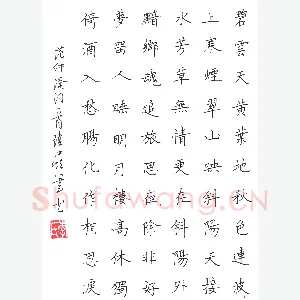 碧雲天黄葉地秋色連波
上寒煙翠山映斜陽天接
水芳草無情更在斜陽外
黯鄉魂追旅思除非好
夢留人睡明月樓高休獨
倚酒入愁腸化作相思淚
范仲淹词一首
Shufawang.CN